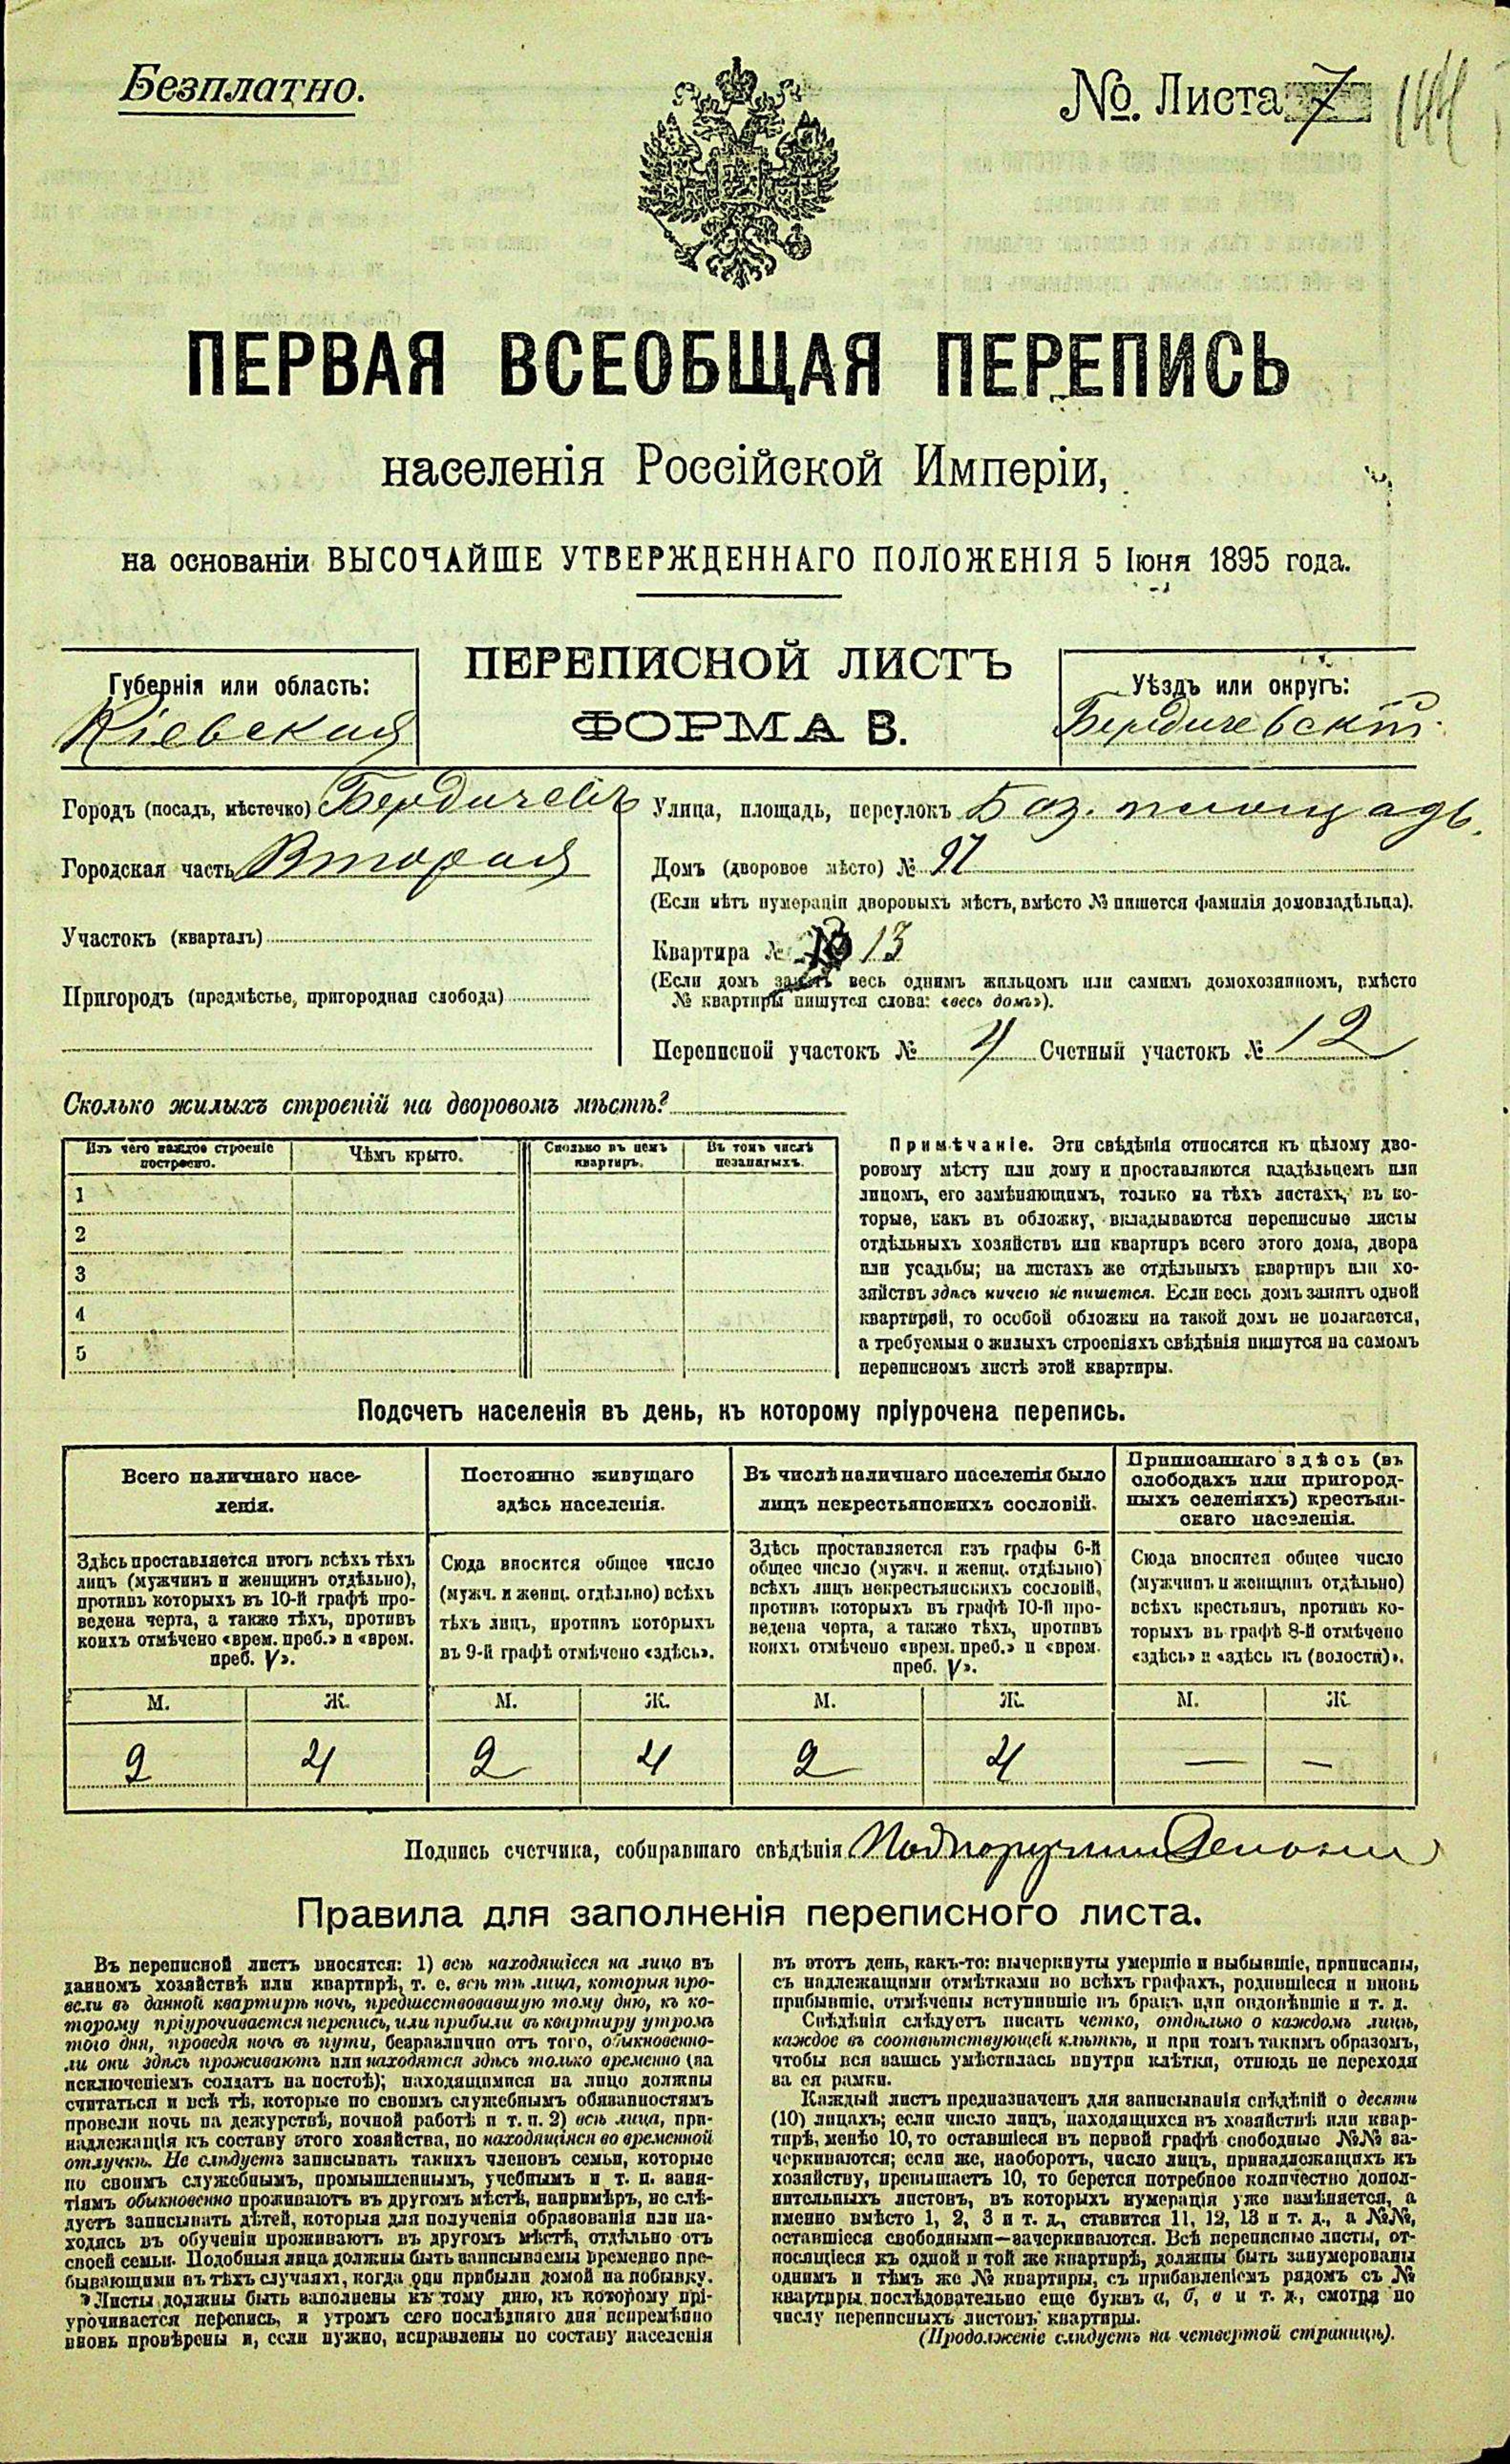 Безплатно.
№. Листа 7
144
ПЕРВАЯ ВСЕОБЩАЯ ПЕРЕПИСЬ
населенія Россійской Имперіи,
на основаніи ВЫСОЧАЙШЕ УТВЕРЖДЕННАГО ПОЛОЖЕНІЯ 5 Іюня 1895 года.
ПЕРЕПИСНОЙ ЛИСТЪ
ФОРМА В.
Губернія или область:
Кіевская
Уѣздъ или округъ:
Бердичевскій
Городъ (посадъ, мѣстечко) Бердичевъ
Городская часть Вторая
Участокъ (кварталъ)
Пригородъ (предмѣстье, пригородная слобода)
Улица, площадь, переулокъ Баз. площадь.
Домъ (дворовое мѣсто) №
(Если нѣтъ нумераціи дворовыхъ мѣстъ, вмѣсто № пишется фамилія домовладѣльца).
Квартира № 13
(Если домъ занятъ весь однимъ жильцомъ или самимъ домохозяиномъ, вмѣсто
№ квартиры пишутся слова: «весь домъ»).
Переписной участокъ № 4 Счетный участокъ № 12
Сколько жилыхъ строеній на дворовомъ мѣстѣ?
Изъ чего каждое строеніе
построено.
Чѣмъ крыто.
Сколько въ немъ
квартиръ.
Въ томъ числѣ
незанятыхъ.
1
2
3
4
5
Примѣчаніе. Эти свѣдѣнія относятся къ цѣлому дво-
ровому мѣсту или дому и проставляются владѣльцемъ или
лицомъ, его замѣняющимъ, только на тѣхъ листахъ, въ ко-
торые, какъ въ обложку, вкладываются переписные листы
отдѣльныхъ хозяйствъ или квартиръ всего этого дома, двора
или усадьбы; на листахъ же отдѣльныхъ квартиръ или хо-
зяйствъ здѣсь ничего не пишется. Если весь домъ занятъ одной
квартирой, то особой обложки на такой домъ не полагается,
а требуемыя о жилыхъ строеніяхъ свѣдѣнія пишутся на самомъ
переписномъ листѣ этой квартиры.
Подсчетъ населенія въ день, къ которому пріурочена перепись.
Всего наличнаго насе-
ленія.
Здѣсь проставляется итогъ всѣхъ тѣхъ
лицъ (мужчинъ и женщинъ отдѣльно),
противъ которыхъ въ 10-й графѣ про-
ведена черта, а также тѣхъ, противъ
коихъ отмѣчено «врем. преб.» и «врем.
преб. V».
М. Ж.
2 4
Постоянно живущаго
здѣсь населенія.
Сюда вносится общее число
(мужч. и женщ. отдѣльно) всѣхъ
тѣхъ лицъ, противъ которыхъ
въ 9-й графѣ отмѣчено «здѣсь».
М. Ж.
2 4
Въ числѣ наличнаго населенія было
лицъ некрестьянскихъ сословій.
Здѣсь проставляется изъ графы 6-й
общее число (мужч. и женщ. отдѣльно)
всѣхъ лицъ некрестьянскихъ сословій,
противъ которыхъ въ графѣ 10-й про-
ведена черта, а также тѣхъ, противъ
коихъ отмѣчено «врем. преб.» и «врем.
преб. V».
М. Ж.
2 4
Приписаннаго здѣсь (въ
слободахъ или пригород-
ныхъ селеніяхъ) крестьян-
скаго населенія.
Сюда вносится общее число
(мужчинъ и женщинъ отдѣльно)
всѣхъ крестьянъ, противъ ко-
торыхъ въ графѣ 8-й отмѣчено
«здѣсь» и «здѣсь къ (волости)».
М. Ж.
— —
Подпись счетчика, собиравшаго свѣдѣнія
Правила для заполненія переписного листа.
Въ переписной листъ вносятся: 1) всѣ находящіеся на лицо въ
данномъ хозяйствѣ или квартирѣ, т. е. всѣ тѣ лица, которыя про-
вели въ данной квартирѣ ночь, предшествовавшую тому дню, къ ко-
торому пріурочивается перепись, или прибыли въ квартиру утромъ
того дня, проведя ночь въ пути, безразлично отъ того, обыкновенно-
ли они здѣсь проживаютъ или находятся здѣсь только временно (за
исключеніемъ солдатъ на постоѣ); находящимися на лицо должны
считаться и всѣ тѣ, которые по своимъ служебнымъ обязанностямъ
провели ночь на дежурствѣ, ночной работѣ и т. п. 2) всѣ лица, при-
надлежащія къ составу этого хозяйства, но находящіяся во временной
отлучкѣ. Не слѣдуетъ записывать такихъ членовъ семьи, которые
по своимъ служебнымъ, промышленнымъ, учебнымъ и т. п. заня-
тіямъ обыкновенно проживаютъ въ другомъ мѣстѣ, напримѣръ, не слѣ-
дуетъ записывать дѣтей, которыя для полученія образованія или на-
ходясь въ обученіи проживаютъ въ другомъ мѣстѣ, отдѣльно отъ
своей семьи. Подобныя лица должны быть записываемы временно пре-
бывающими въ тѣхъ случаяхъ, когда они прибыли домой на побывку.
Листы должны быть заполнены къ тому дню, къ которому прі-
урочивается перепись, и утромъ сего послѣдняго дня непремѣнно
вновь провѣрены и, если нужно, исправлены по составу населенія
въ этотъ день, какъ-то: вычеркнуты умершіе и выбывшіе, приписаны,
съ надлежащими отмѣтками во всѣхъ графахъ, родившіеся и вновь
прибывшіе, отмѣчены вступившіе въ бракъ или овдовѣвшіе и т. д.
Свѣдѣнія слѣдуетъ писать четко, отдѣльно о каждомъ лицѣ,
каждое въ соотвѣтствующей клѣткѣ, и при томъ такимъ образомъ,
чтобы вся запись умѣстилась внутри клѣтки, отнюдь не переходя
за ея рамки.
Каждый листъ предназначенъ для записыванія свѣдѣній о десяти
(10) лицахъ; если число лицъ, находящихся въ хозяйствѣ или квар-
тирѣ, менѣе 10, то оставшіеся въ первой графѣ свободные №№ за-
черкиваются; если же, наоборотъ, число лицъ, принадлежащихъ къ
хозяйству, превышаетъ 10, то берется потребное количество допол-
нительныхъ листовъ, въ которыхъ нумерація уже измѣняется, а
именно вмѣсто 1, 2, 3 и т. д., ставится 11, 12, 13 и т. д., а №№,
оставшіеся свободными—зачеркиваются. Всѣ переписные листы, от-
носящіеся къ одной и той же квартирѣ, должны быть занумерованы
однимъ и тѣмъ же № квартиры, съ прибавленіемъ рядомъ съ №
квартиры последовательно еще буквъ а, б, в и т. д., смотря по
числу переписныхъ листовъ квартиры.
(Продолженіе слѣдуетъ на четвертой страницѣ).